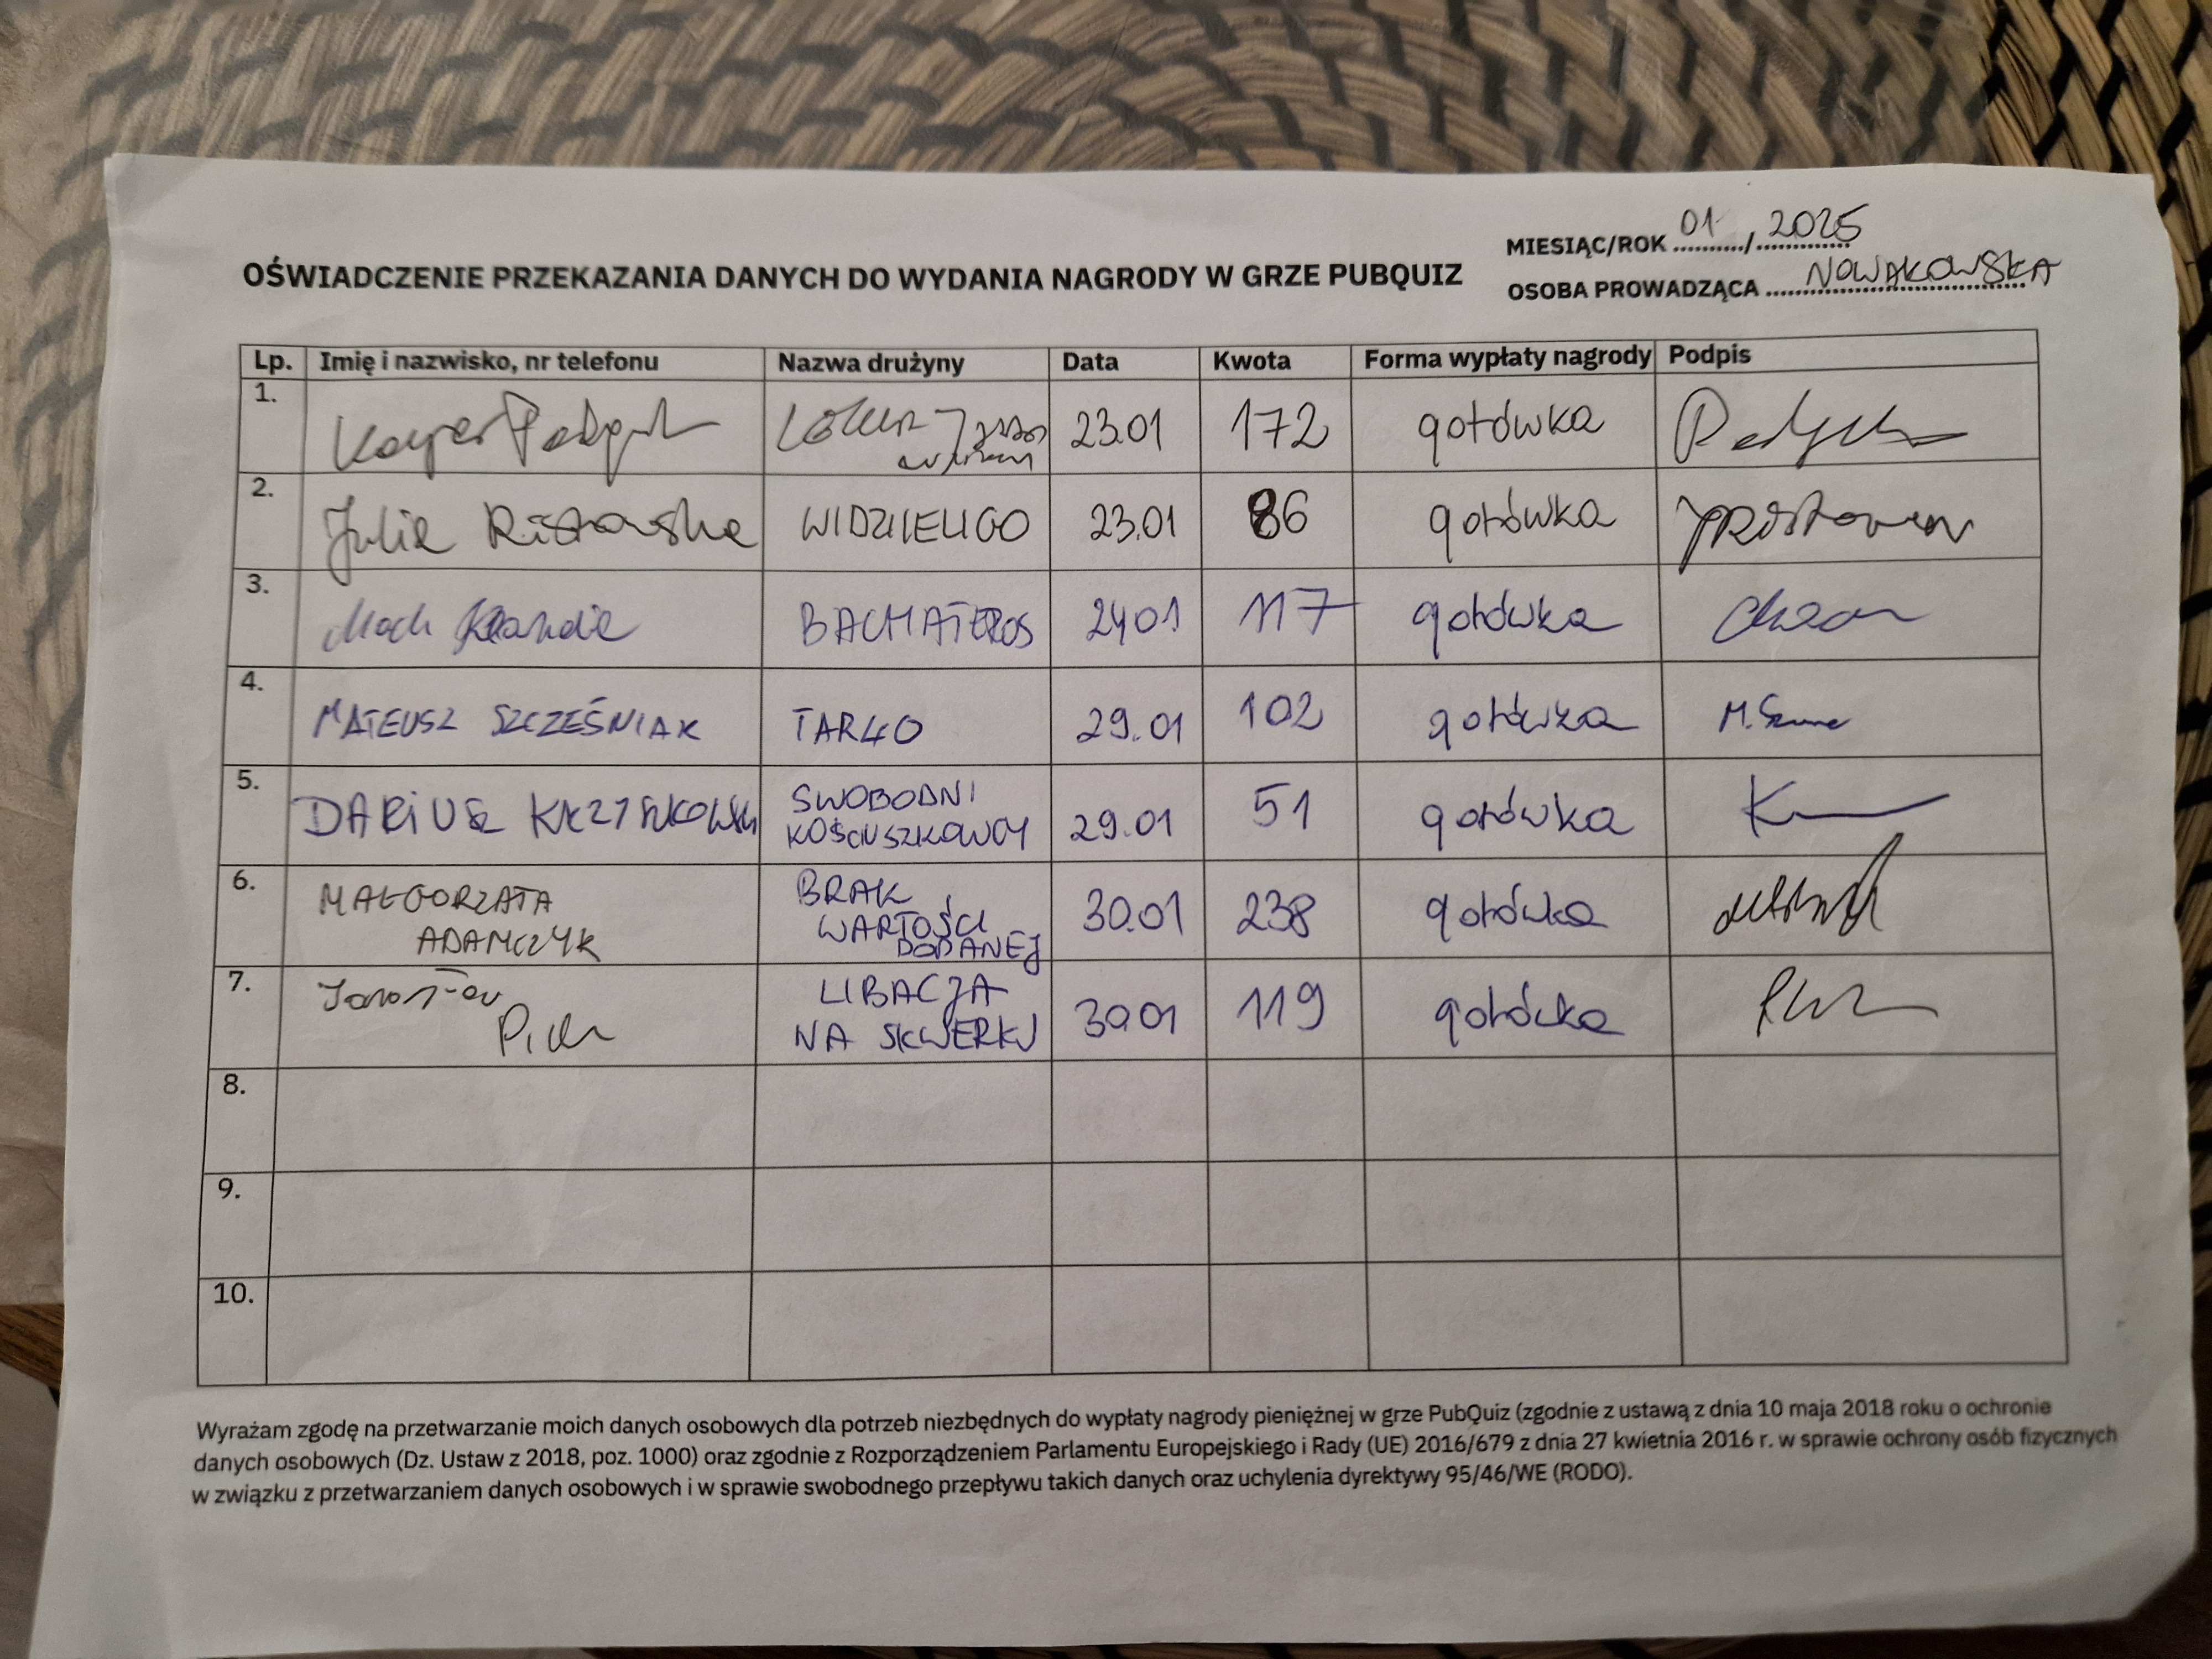 MIESIĄC/ROK 01 / 2025
OŚWIADCZENIE PRZEKAZANIA DANYCH DO WYDANIA NAGRODY W GRZE PUBQUIZ
OSOBA PROWADZĄCA NOWAKOWSKA
Lp. Imię i nazwisko, nr telefonu Nazwa drużyny Data Kwota Forma wypłaty nagrody Podpis
1. Kacper 23.01 172 gotówka
2. Julia WIDZIELIGO 23.01 86 gotówka
3. 24.01 117 gotówka
4. MATEUSZ SZCZEŚNIAK TARGO 29.01 102 gotówka
5. DARIUSZ SWOBODNI
KOŚCIUSZKOWCY 29.01 51 gotówka
6. MAŁGORZATA
ADAMCZYK BRAK
WARTOŚCI
DODANEJ 30.01 238 gotówka
7. Jarosław LIBACJA
NA SKWERKU 30.01 119 gotówka
8.
9.
10.
Wyrażam zgodę na przetwarzanie moich danych osobowych dla potrzeb niezbędnych do wypłaty nagrody pieniężnej w grze PubQuiz (zgodnie z ustawą z dnia 10 maja 2018 roku o ochronie
danych osobowych (Dz. Ustaw z 2018, poz. 1000) oraz zgodnie z Rozporządzeniem Parlamentu Europejskiego i Rady (UE) 2016/679 z dnia 27 kwietnia 2016 r. w sprawie ochrony osób fizycznych
w związku z przetwarzaniem danych osobowych i w sprawie swobodnego przepływu takich danych oraz uchylenia dyrektywy 95/46/WE (RODO).